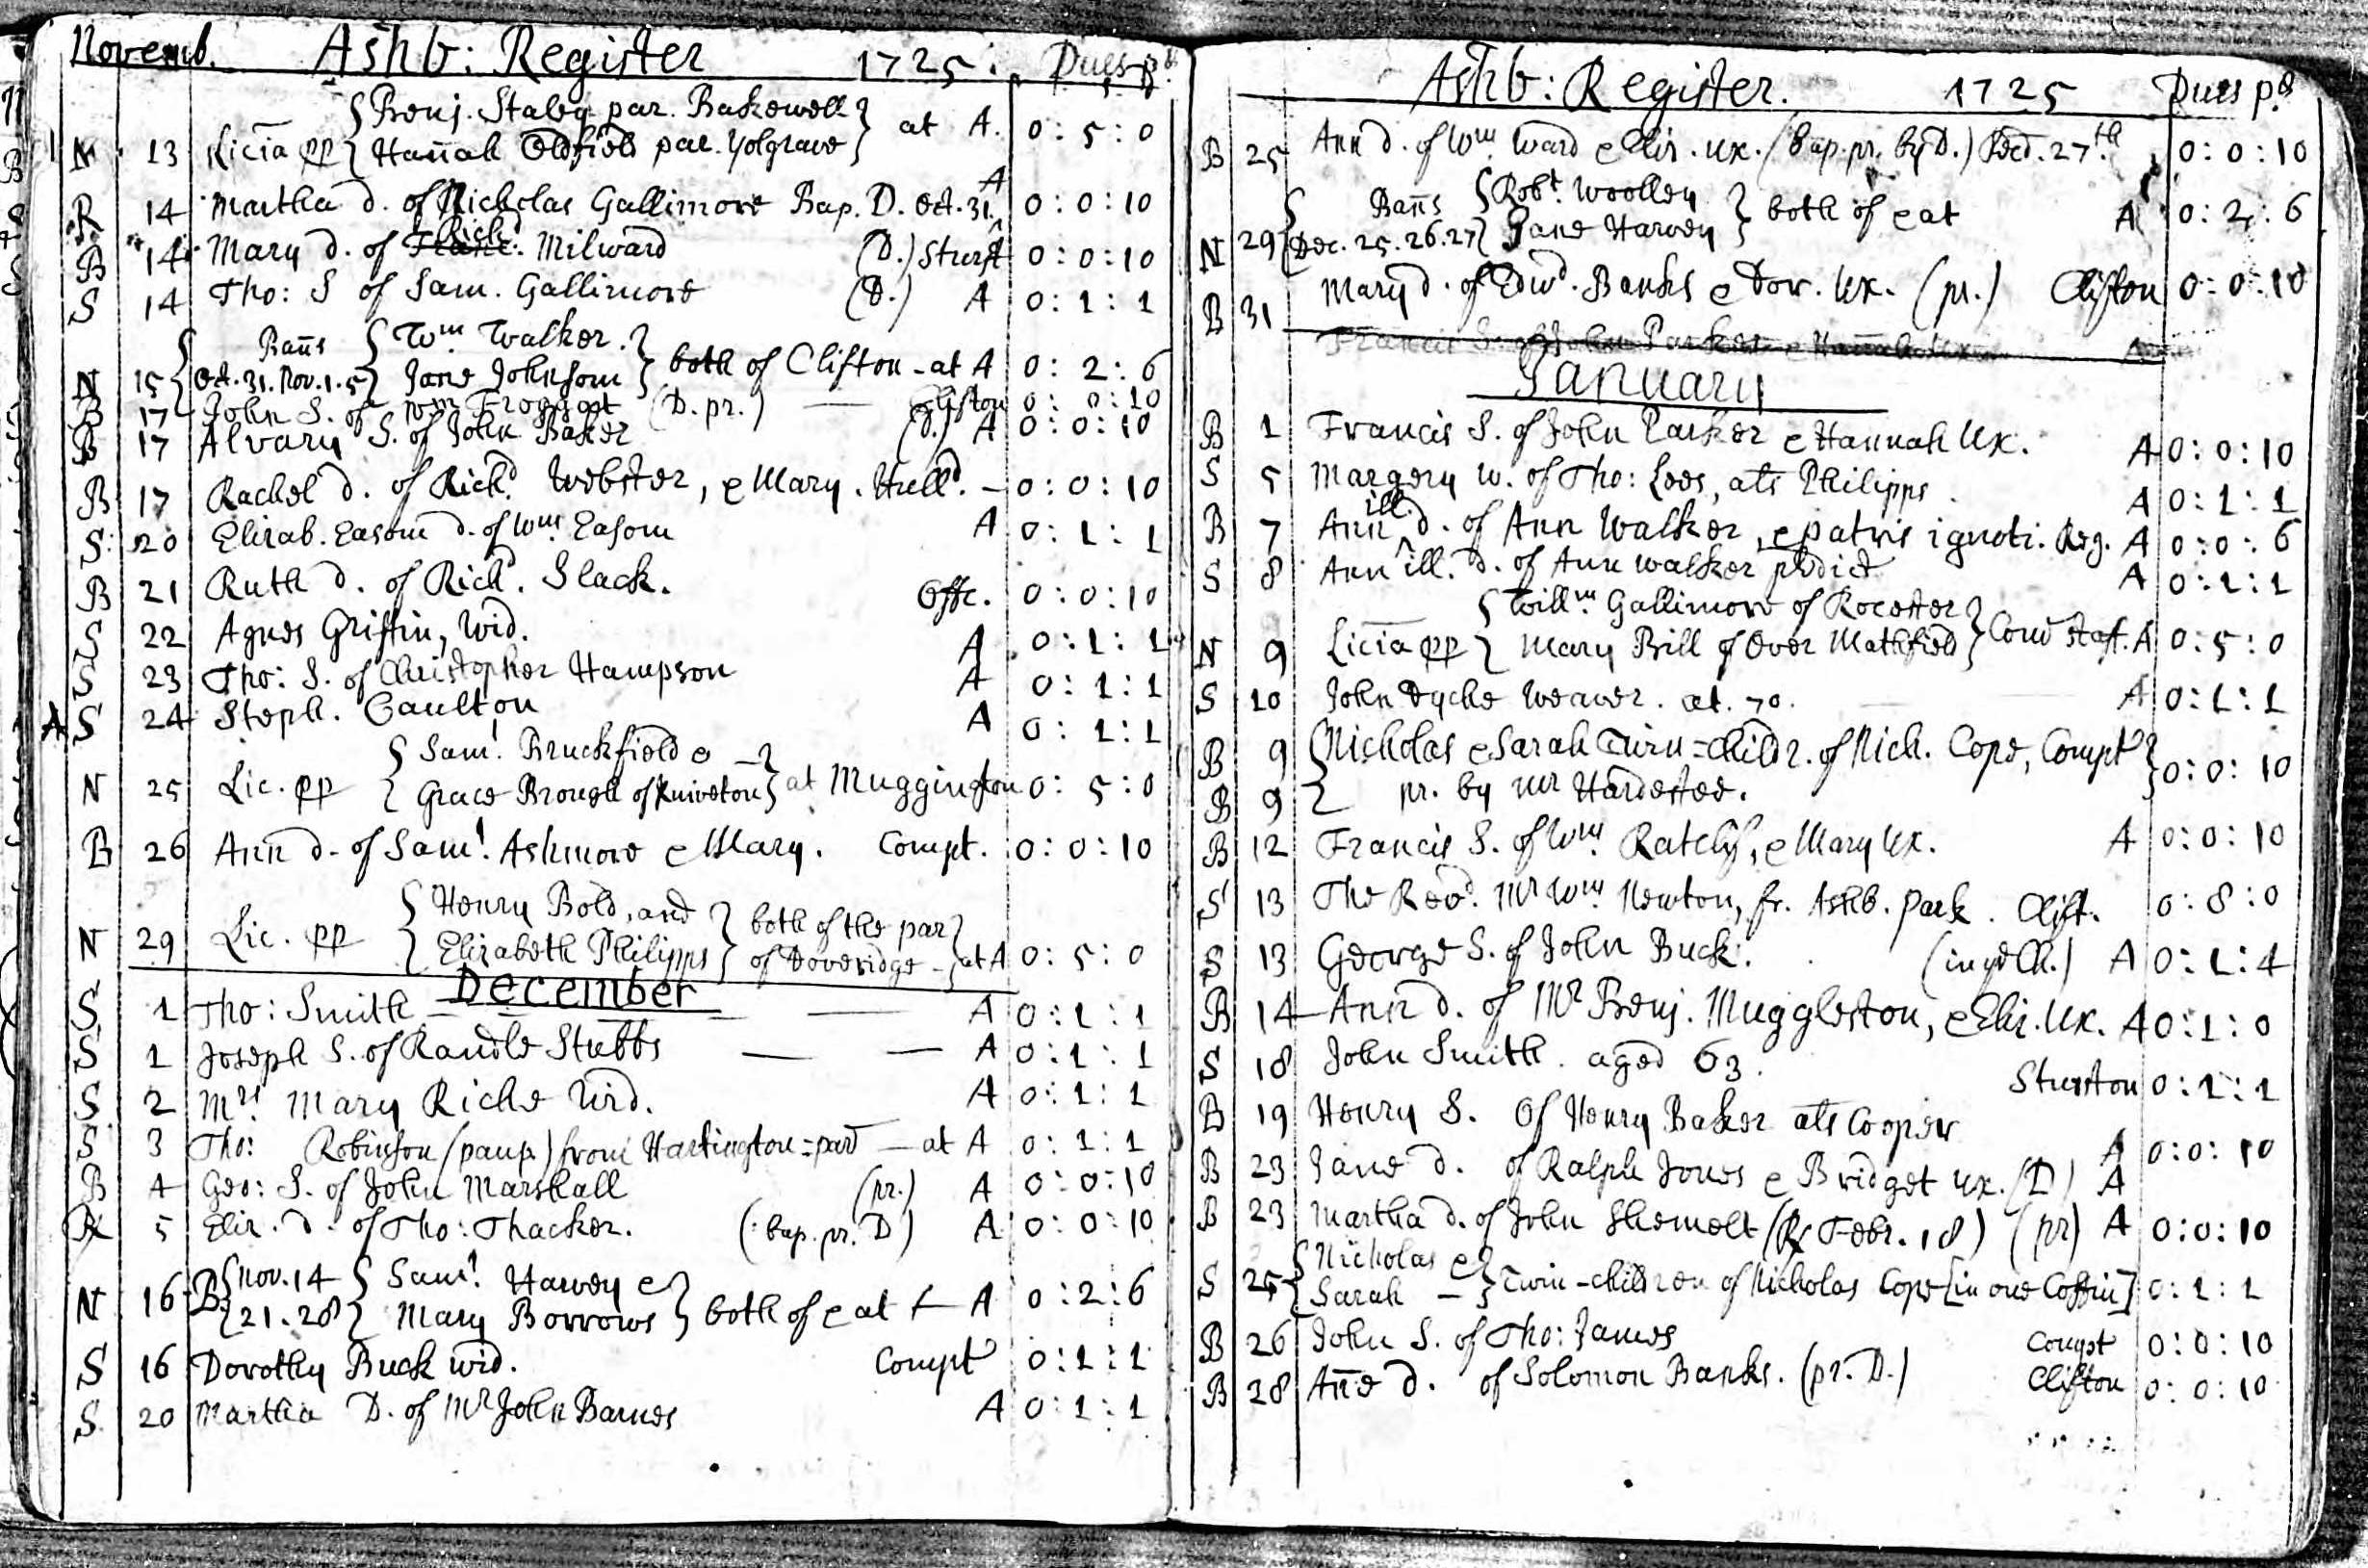 Novemb. Ashb: Register 1725. Dues pd
{Benj. Staley par. Bakewell}
N 13 Licia pp {Hanah Oldfield par. Yolgrave} at A. 0:5:0
R 14 Martha d. of Nicholas Gallimore Bap. D. Oct. 31. A 0:0:10
Richd
B 14 Mary d. of Milward (D.) Sturst 0:0:10
S 14 Tho: S of Sam. Gallimore (D.) A 0:1:1
{Bans {Wm Walker.}
N 15 {Oct. 31. Nov. 1. 5} Jane Johnson} both of Clifton - at A 0:2:6
B 17 John S. of Wm Froggat (D. pr.) — Clifton 0:0:10
B 17 Alvary S. of John Baker (D.) A 0:0:10
B 17 Rachel d. of Richd. Webster, e Mary. Hulld. - 0:0:10
S 20 Elizab. Easom d. of Wm Easom A 0:1:1
B 21 Ruth d. of Richd. Slack. Offc. 0:0:10
S 22 Agnes Griffin, Wid. A 0:1:1
S 23 Tho: S. of Christopher Hampson A 0:1:1
A S 24 Steph. Caulton A 0:1:1
{Saml. Bruckfield e —}
N 25 Lic. pp {Grace Brough of Kniveton} at Muggington 0:5:0
B 26 Ann d. of Saml. Ashmore e Mary. Compt. 0:0:10
{Henry Bold, and} both of the par}
N 29 Lic. pp {Elizabeth Philipps} of Doveridge -} at A 0:5:0
December
S 1 Tho: Smith — — — A 0:1:1
S 1 Joseph S. of Randle Stubbs — — A 0:1:1
S 2 Mrs Mary Riche Wid. A 0:1:1
S 3 Tho: Robinson (paup.) from Hartington = par — at A 0:1:1
B 4 Geo: S. of John Marshall (pr.) A 0:0:10
R 5 Eliz. d. of Tho: Thacker. (bap. pr. D) A 0:0:10
{Nov. 14 {Saml. Harvey e}
N 16 B {21. 28} {Mary Borrows} both of e at — A 0:2:6
S 16 Dorothy Buck wid. Compt 0:1:1
S 20 Martha D. of Mr John Barnes A 0:1:1
Ashb: Register. 1725 Dues pd
B 25 Ann d. of Wm. Ward e Eliz. ux. (bap. pr. by D.) Decd. 27th 0:0:10
{Bans {Robt. Woolley}
N 29 {Dec. 25. 26. 27} {Jane Harvey} both of e at A 0:2:6
B 31 Mary d. of Edwd. Banks e Dor. Ux. (pr.) Clifton 0:0:10
Francis S. of John Parker e Hannah Ux. A
January
B 1 Francis S. of John Parker e Hannah Ux. A 0:0:10
S 5 Margery w. of Tho: Lees, als Philipps. A 0:1:1
B 7 Ann ill. d. of Ann Walker, e patris ignoti. Reg. A 0:0:6
S 8 Ann ill. d. of Ann Walker pdict A 0:1:1
{Willm. Gallimore of Rocester}
N 9 Licia pp {Mary Bill of Over Mathfield} Com Staff. A 0:5:0
S 10 John Dyche Weaver. æt. 70. A 0:1:1
B 9 {Nicholas e Sarah Twin = childr. of Nich. Cope, Compt}
B 9 { pr. by Mr Hardestee. 0:0:10
B 12 Francis S. of Wm. Ratclif, e Mary Ux. A 0:0:10
S 13 The Revd. Mr Wm Newton, fr. Ashb. Park. Clift. 0:8:0
S 13 George S. of John Buck. (in ye Ch.) A 0:1:4
B 14 Ann d. of Mr Benj. Muggleston, e Eliz. Ux. A 0:1:0
S 18 John Smith. aged 63. Sturston 0:1:1
B 19 Henry S. Of Henry Baker als Cooper A 0:0:10
B 23 Jane d. of Ralph Jones e Bridget ux. (D) A
B 23 Martha d. of John Shemelt (R Febr. 18) (pr) A 0:0:10
{Nicholas e}
S 25 {Sarah —} Twin-children of Nicholas Cope [in one Coffin] 0:1:1
B 26 John S. of Tho: James Compt 0:0:10
B 28 Ane d. of Solomon Banks. (pr. D.) Clifton 0:0:10